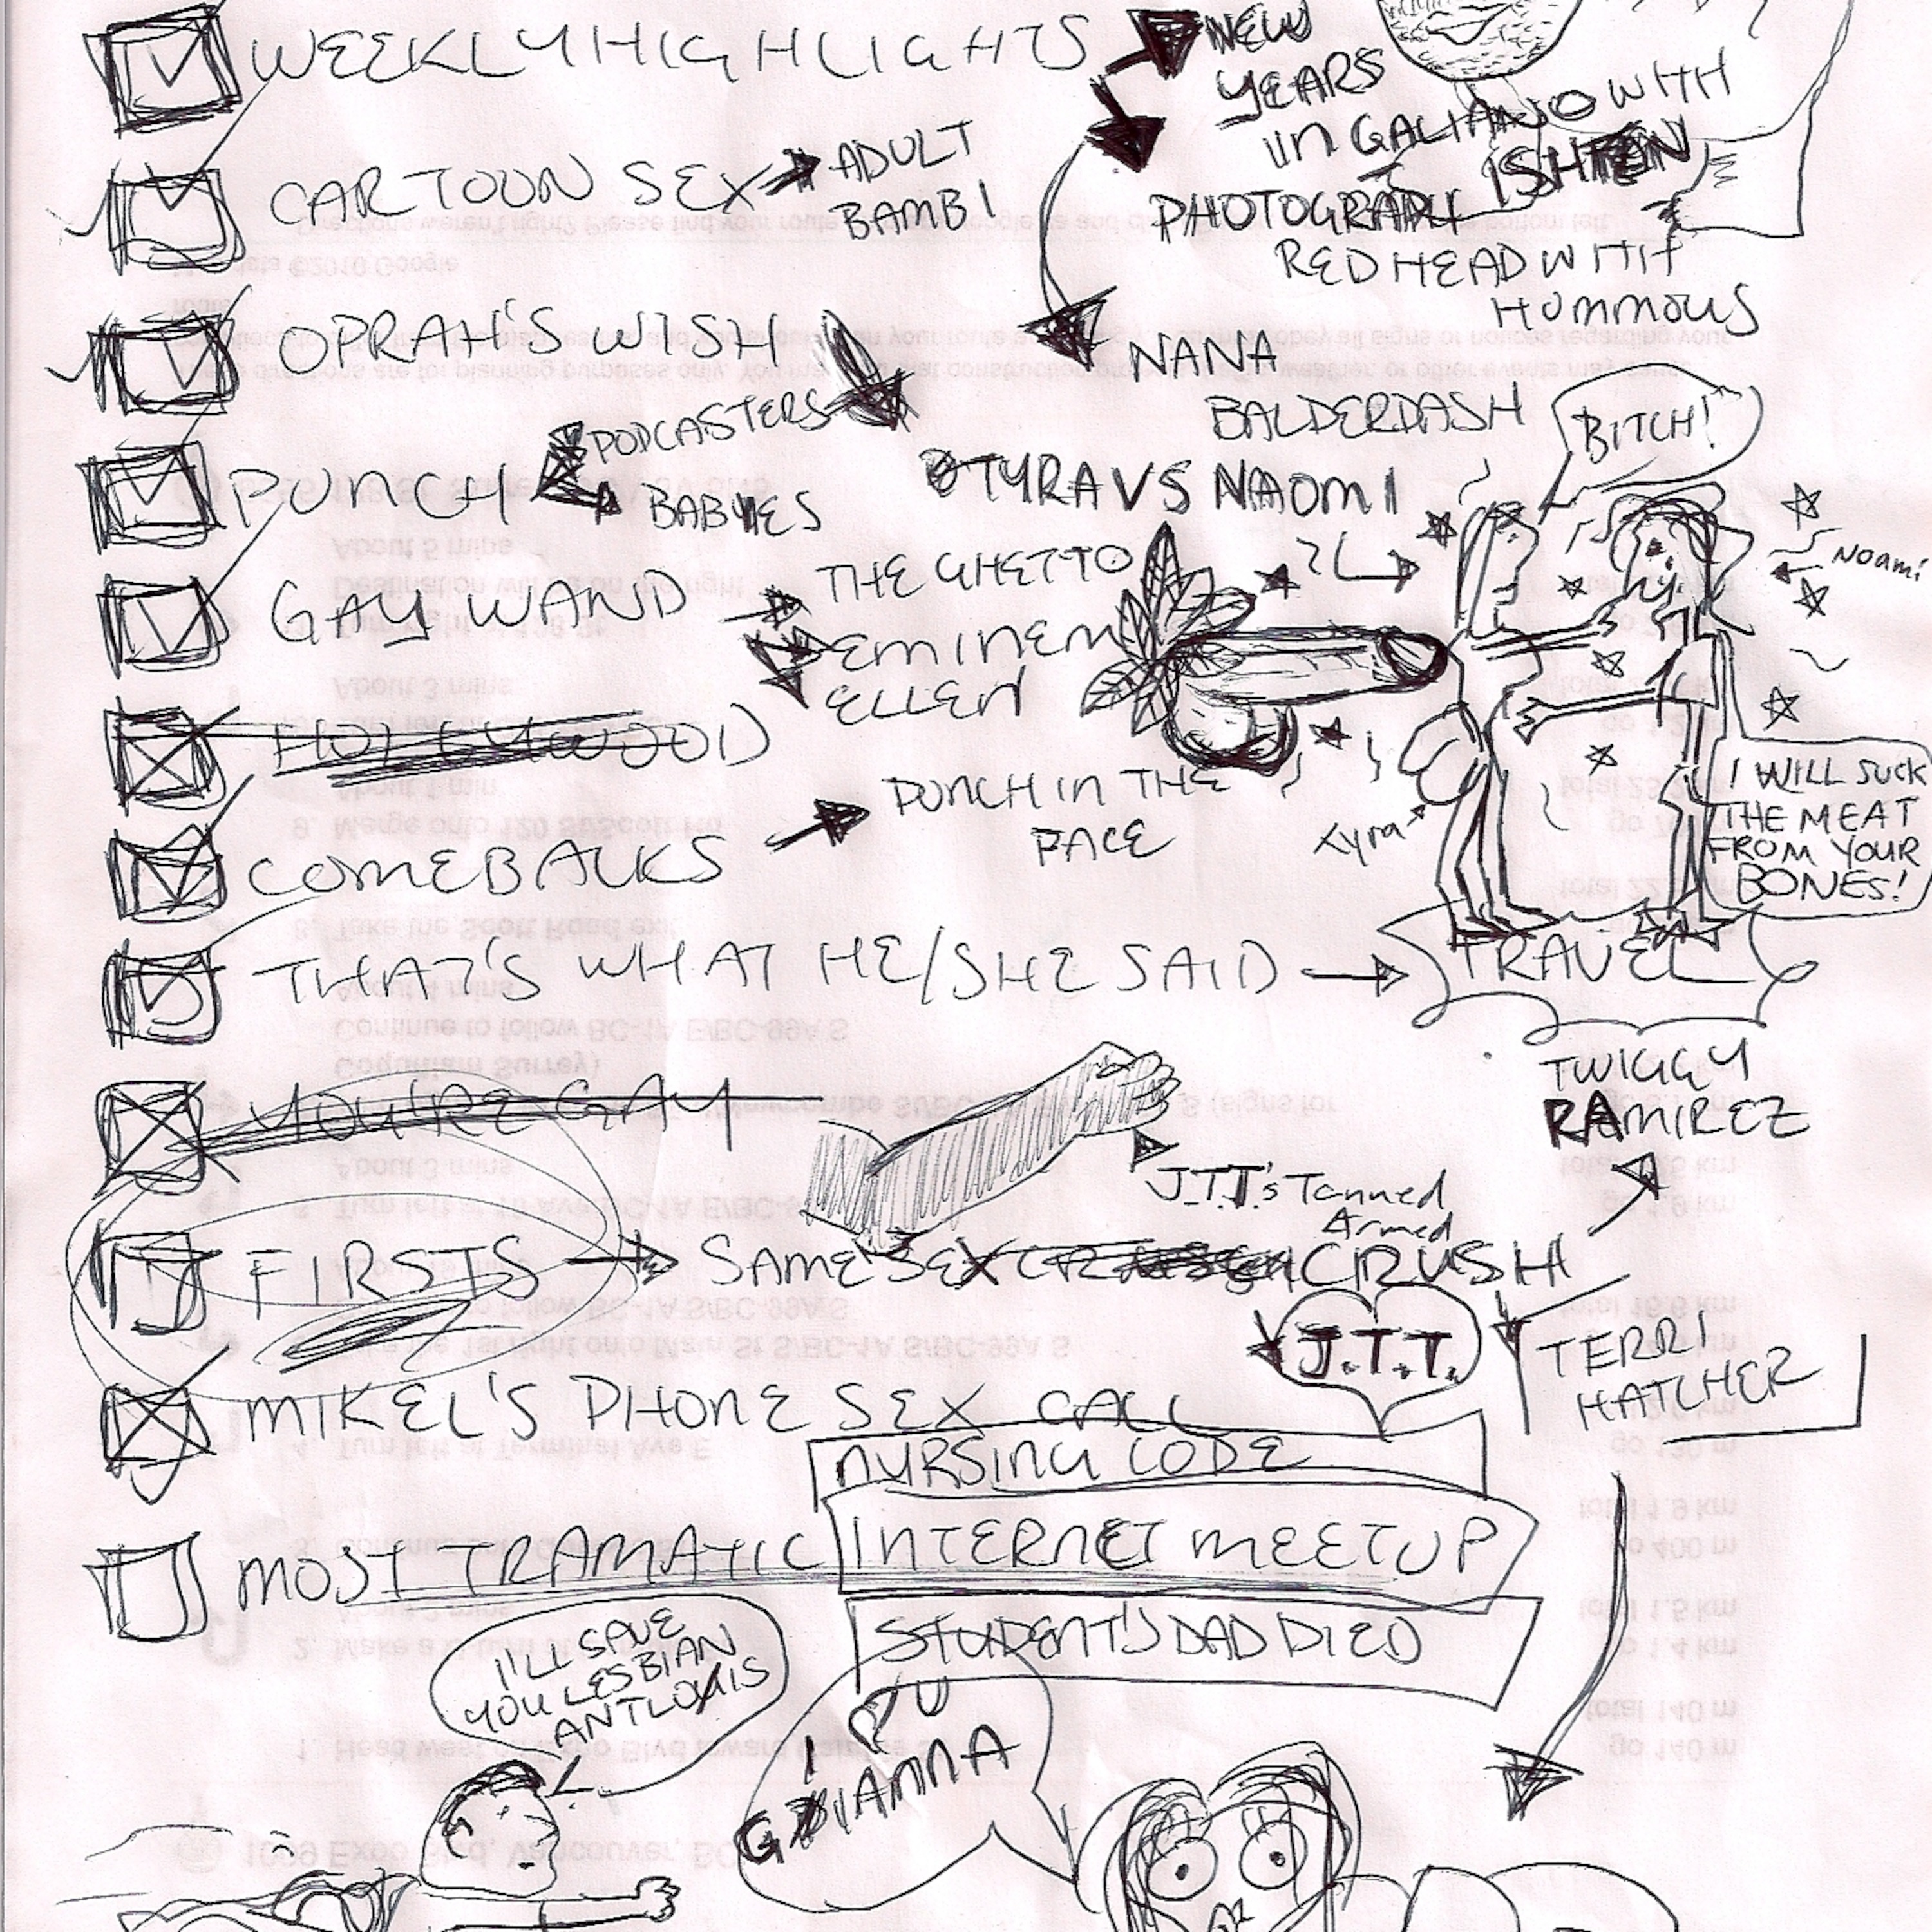 WEEKLY HIGHLIGHTS
NEW
YEARS
IN GALIANO WITH
ISHTAN
PHOTOGRAPH
REDHEAD WITH
HUMMOUS
CARTOON SEX
ADULT
BAMBI
OPRAH'S WISH
NANA
BALDERDASH
BITCH!
PUNCH
PODCASTERS
BABIES
TYRA VS NAOMI
NOAMi
GAY WAND
THE GHETTO
EMINEM
ELLEN
HOLLYWOOD
PUNCH IN THE
FACE
Tyra
I WILL SUCK
THE MEAT
FROM YOUR
BONES!
COMEBACKS
THAT'S WHAT HE/SHE SAID
TRAVEL
TWIGGY
RAMIREZ
YOU'RE GAY
J.T.T's Tanned
Armed
FIRSTS
SAME SEX CRUSH
J.T.T.
TERRI
HATCHER
MIKEL'S PHONE SEX CALL
NURSING CODE
MOST TRAMATIC
INTERNET MEETUP
STUDENT'S DAD DIED
I'LL SAVE
YOU LESBIAN
I R U
GIANNA